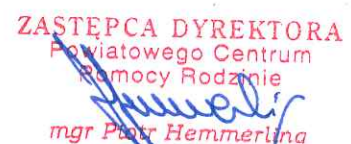 ZASTĘPCA DYREKTORA
Powiatowego Centrum
Pomocy Rodzinie
mgr Piotr Hemmerling